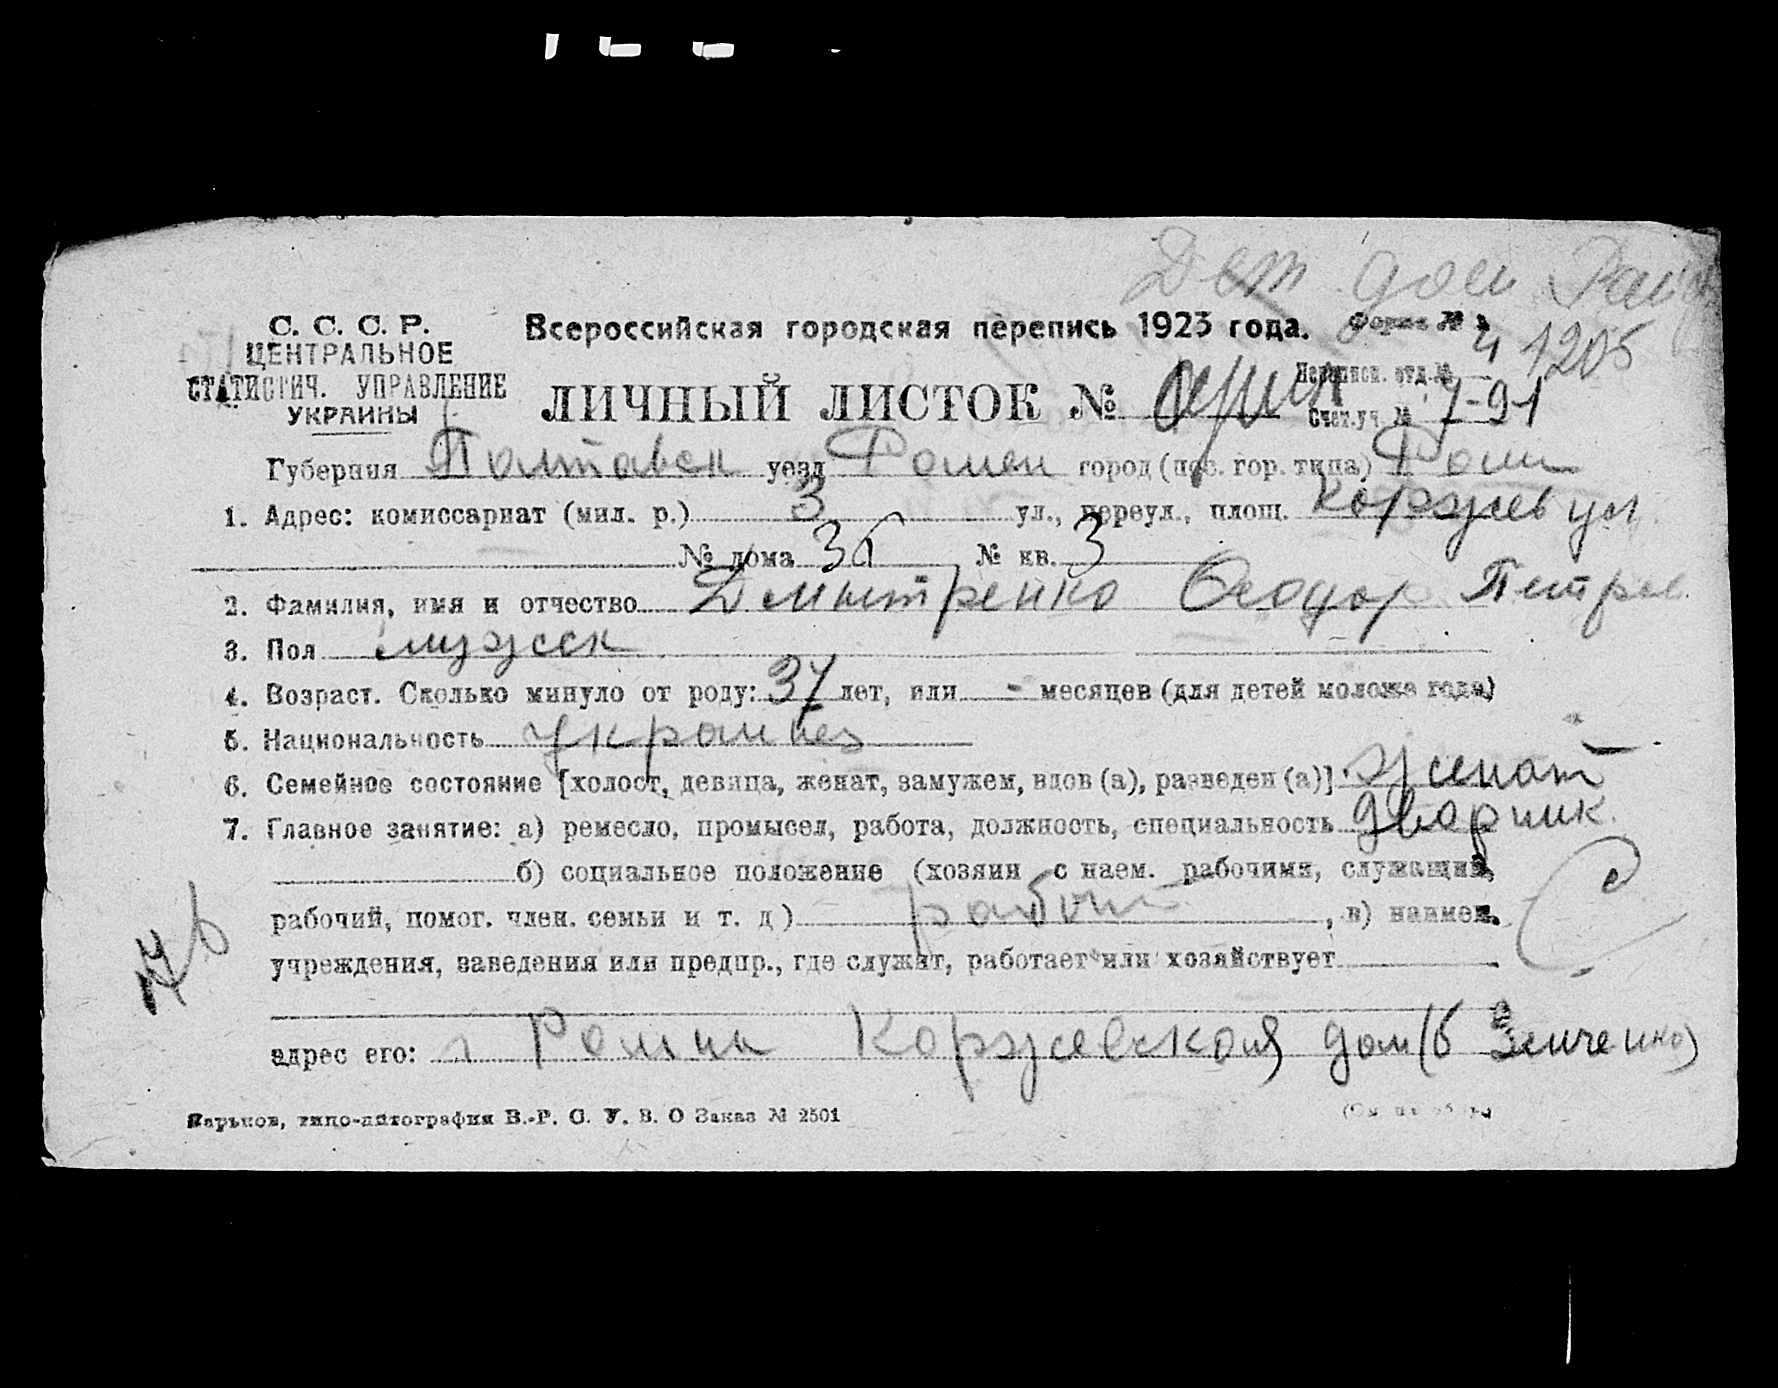 Дет дом
С. С. С. Р.
ЦЕНТРАЛЬНОЕ
СТАТИСТИЧ. УПРАВЛЕНИЕ
УКРАИНЫ
Всероссийская городская перепись 1923 года.
Форма №
4 1205
ЛИЧНЫЙ ЛИСТОК №
Переписн. отд. №
Счетн. уч. № 7-91
Губерния Полтавск уезд Ромен город (пос. гор. типа) Ромн
1. Адрес: комиссариат (мил. р.) 3 ул., переул., площ. Коржев ул
№ дома 36 № кв. 3
2. Фамилия, имя и отчество Дмитренко Феодор Петров
3. Пол мужск
4. Возраст. Сколько минуло от роду: 37 лет, или - месяцев (для детей моложе года)
5. Национальность украинец
6. Семейное состояние [холост, девица, женат, замужем, вдов (а), разведен (а)] женат
7. Главное занятие: а) ремесло, промысел, работа, должность, специальность дворник
б) социальное положение (хозяин с наем. рабочими, служащий,
рабочий, помог. член. семьи и т. д) работ , в) наимен.
учреждения, заведения или предпр., где служит, работает или хозяйствует
адрес его: г Ромны Коржевская дом (б Зинченко)
Харьков, типо-литография В.-Р. С. У. В. О Заказ № 2501